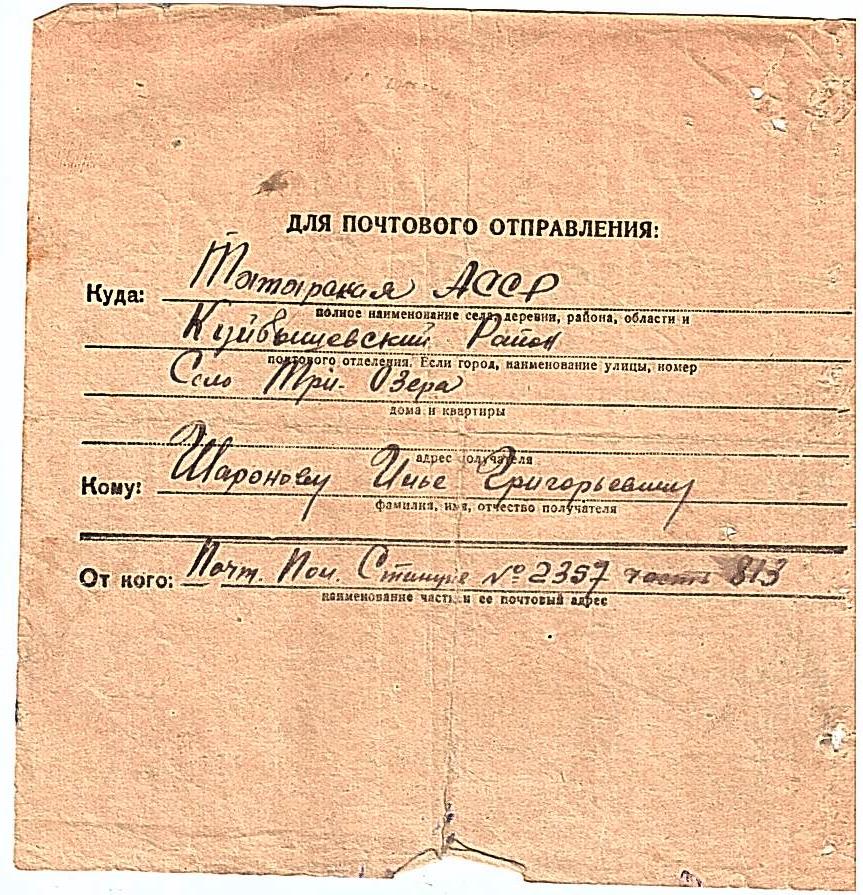 ДЛЯ ПОЧТОВОГО ОТПРАВЛЕНИЯ:
Куда: Татарская АССР
полное наименование села, деревни, района, области и
Куйбышевский Район
почтового отделения. Если город, наименование улицы, номер
Село Три-Озера
дома и квартиры
адрес получателя
Кому: Шаронову Илье Григорьевичу
фамилия, имя, отчество получателя
От кого: Почт. Пол. Станция № 2357 часть 813
наименование части и ее почтовый адрес